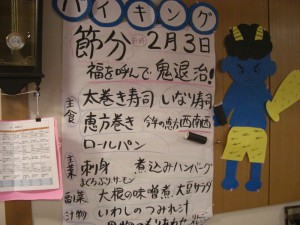 バイキング
節分 2月3日
福を呼んで鬼退治!
主食 太巻き寿司 いなり寿司
恵方巻き 今年の恵方 西南西
ロールパン
主菜 刺身 煮込みハンバーグ
まぐろ.ぶり.サーモン
副菜 大根の味噌煮 大豆サラダ
汁物 いわしのつみれ汁